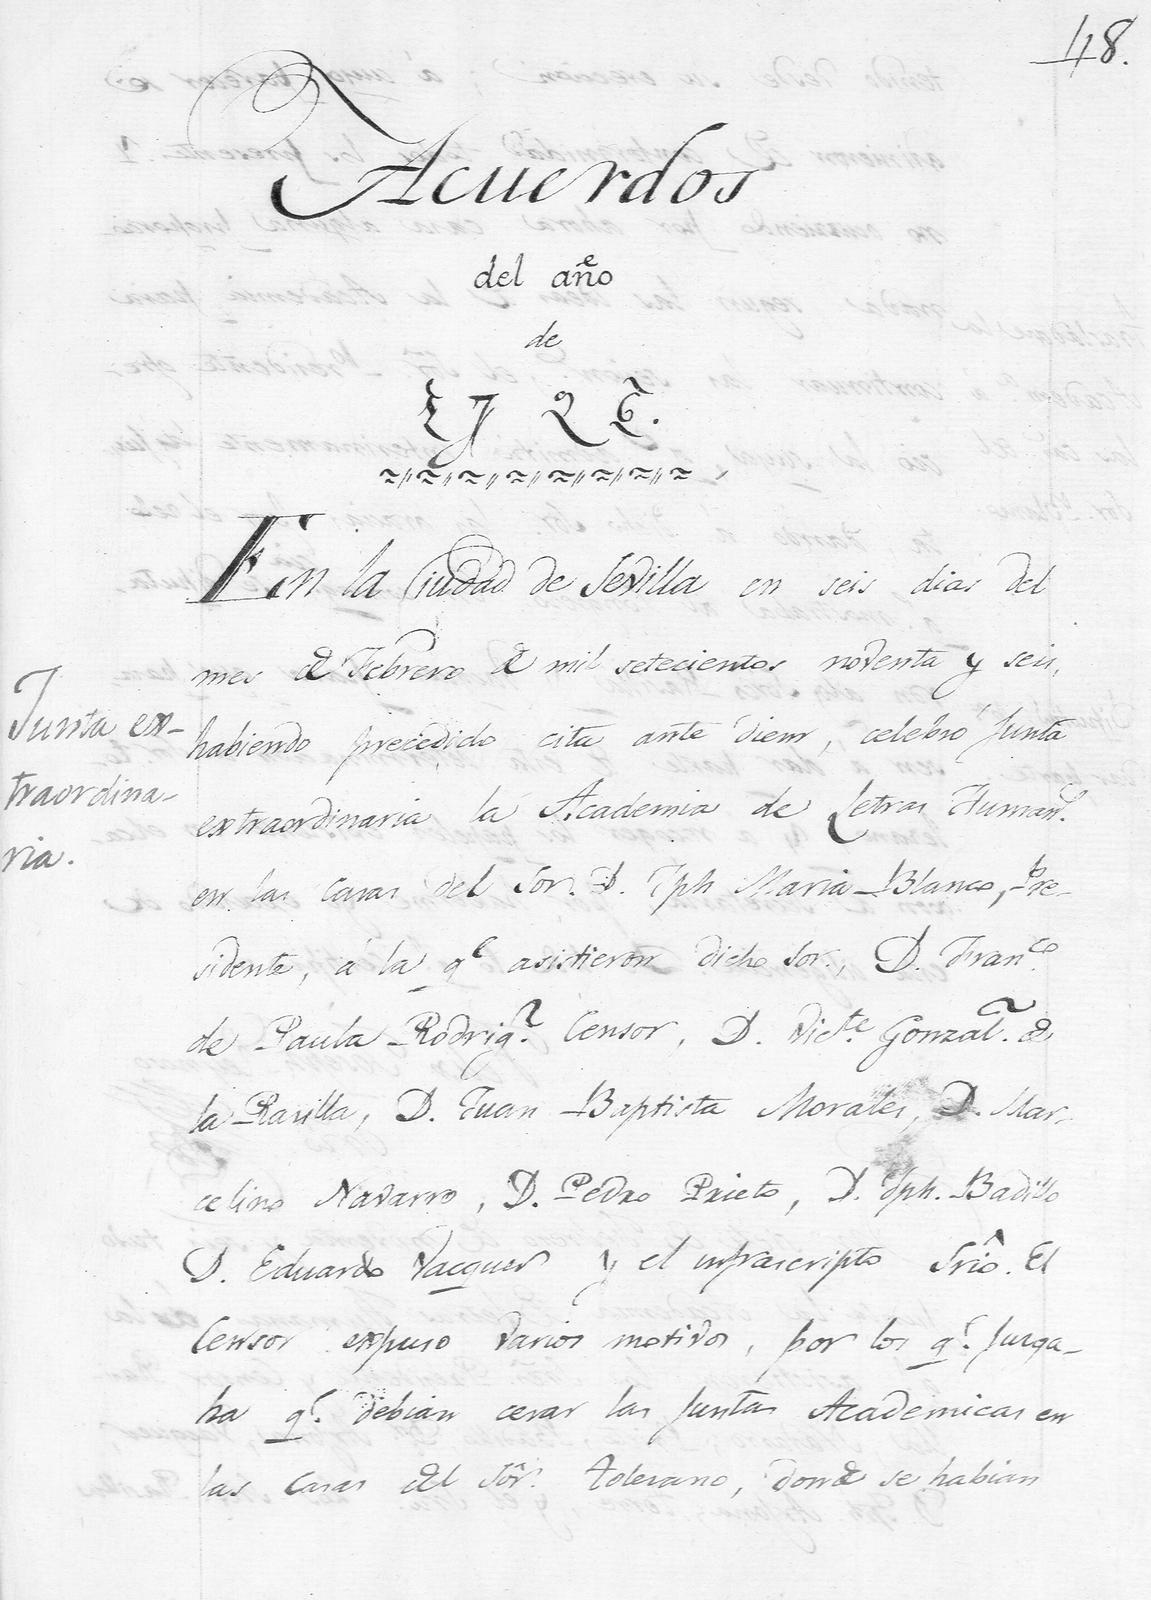 48.
Acuerdos
del año
de
1796.
En la Ciudad de Sevilla en seis dias del
mes de Febrero de mil setecientos noventa y seis,
Junta ex-
traordina-
ria.
habiendo precedido cita ante diem, celebró Junta
extraordinaria la Academia de Letras Humans.
en las casas del Sor. D. Jph Maria Blanco, Pre-
sidente, á la qe asistieron dicho Sor., D. Franco.
de Paula Rodrigz. Censor, D. Victe. Gonzalz. de
la Rasilla, D. Juan Baptista Morales, D. Mar-
celino Navarro, D. Pedro Prieto, D. Jph. Badillo
D. Eduardo Vacquer y el infrascripto Srio. El
Censor expuso varios motivos, por los qe. juzga-
ba qe. debian cesar las Juntas Academicas en
las casas del Sor. Tolezano, donde se habian